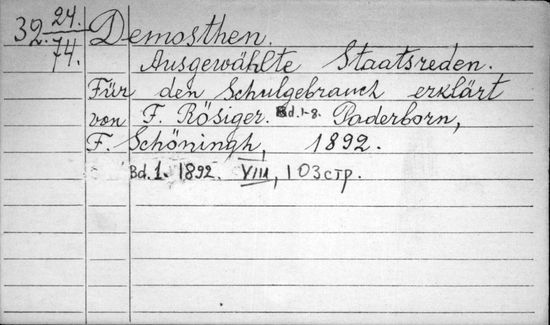 32. 24./74.
Demosthen.
Ausgewählte Staatsreden.
Für den Schulgebrauch erklärt
von F. Rösiger. Bd. 1-8. Paderborn,
F. Schöningh, 1892.
Bd. 1. 1892. VIII, 103 стр.